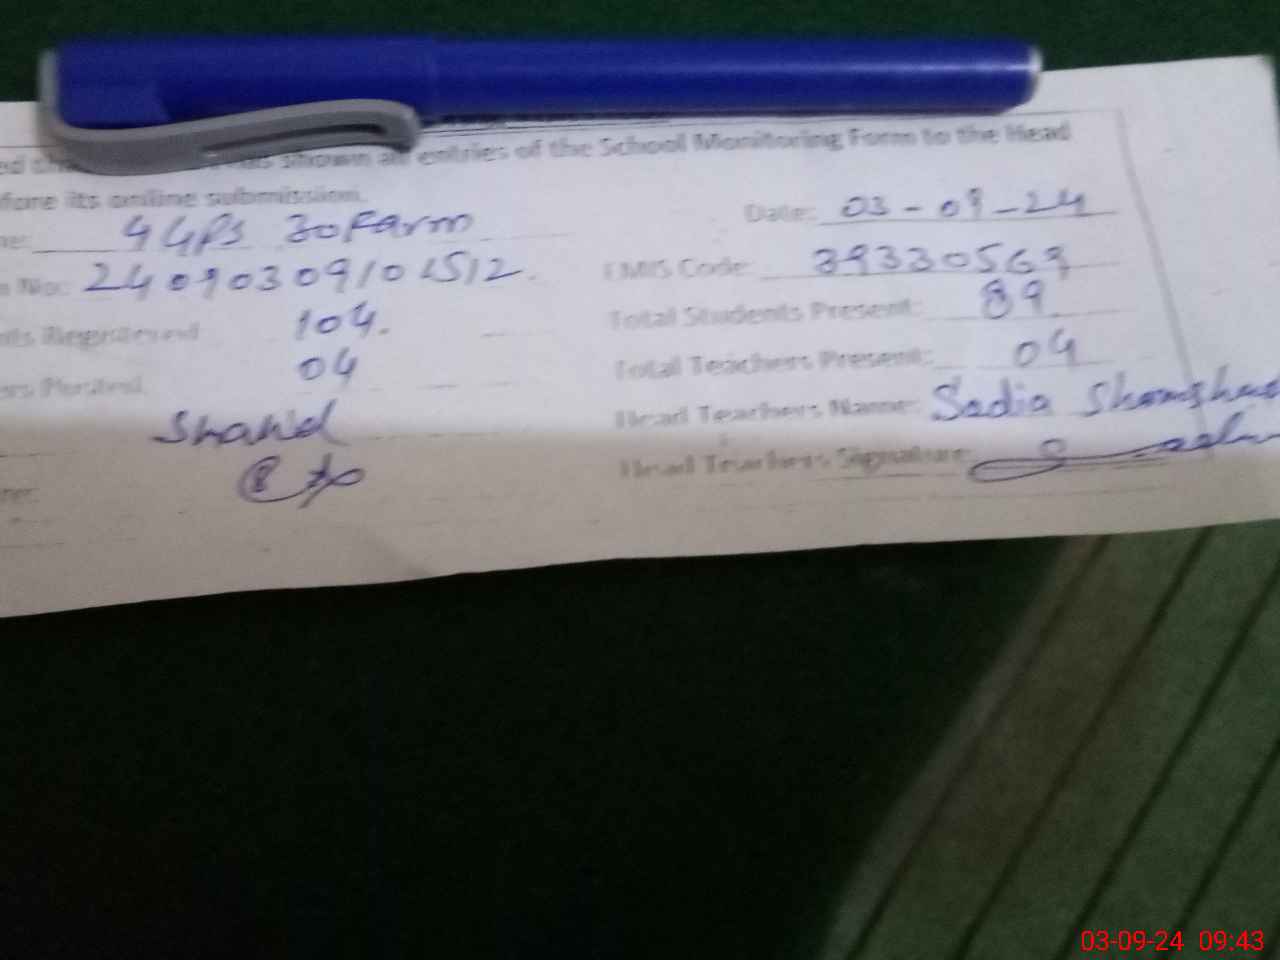 shown all entries of the School Monitoring Form to the Head
its online submission.
GGPS 30 Farm Date: 03-09-24
No: 24090309101512. EMIS Code: 39330569
Registered 104. Total Students Present: 89.
Posted 04 Total Teachers Present: 04
Shahid Head Teachers Name: Sadia Shamshad
Head Teachers Signature:
03-09-24 09:43